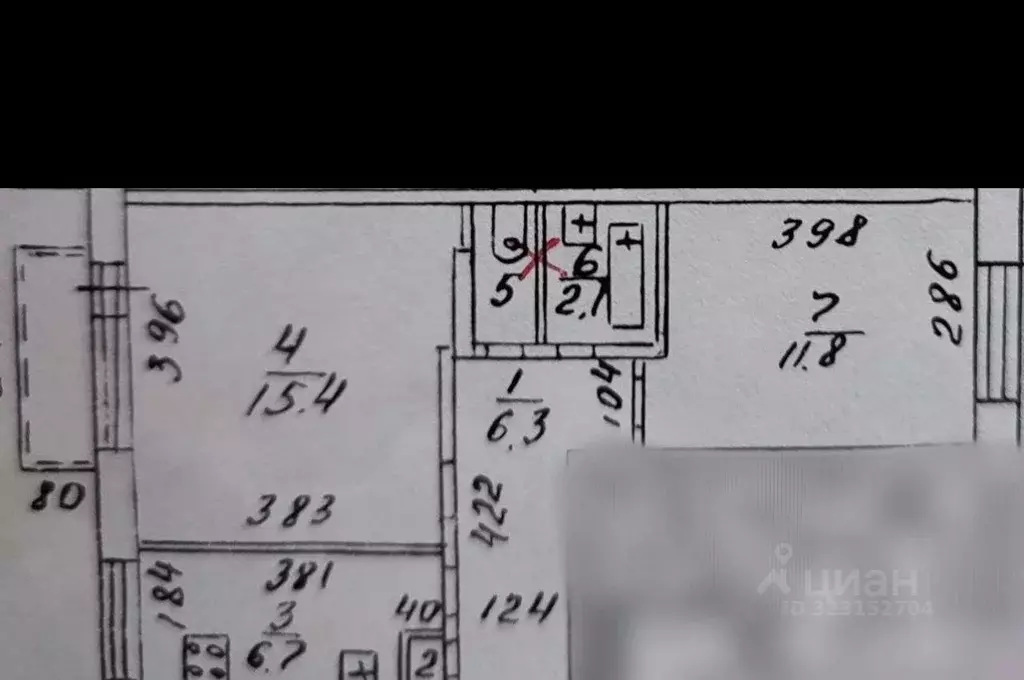 398
286
396
4
15.4
5
6
2.1
7
11.8
1
6.3
104
80
383
422
381
184
3
6.7
40
2
124
циан
ID 323152704